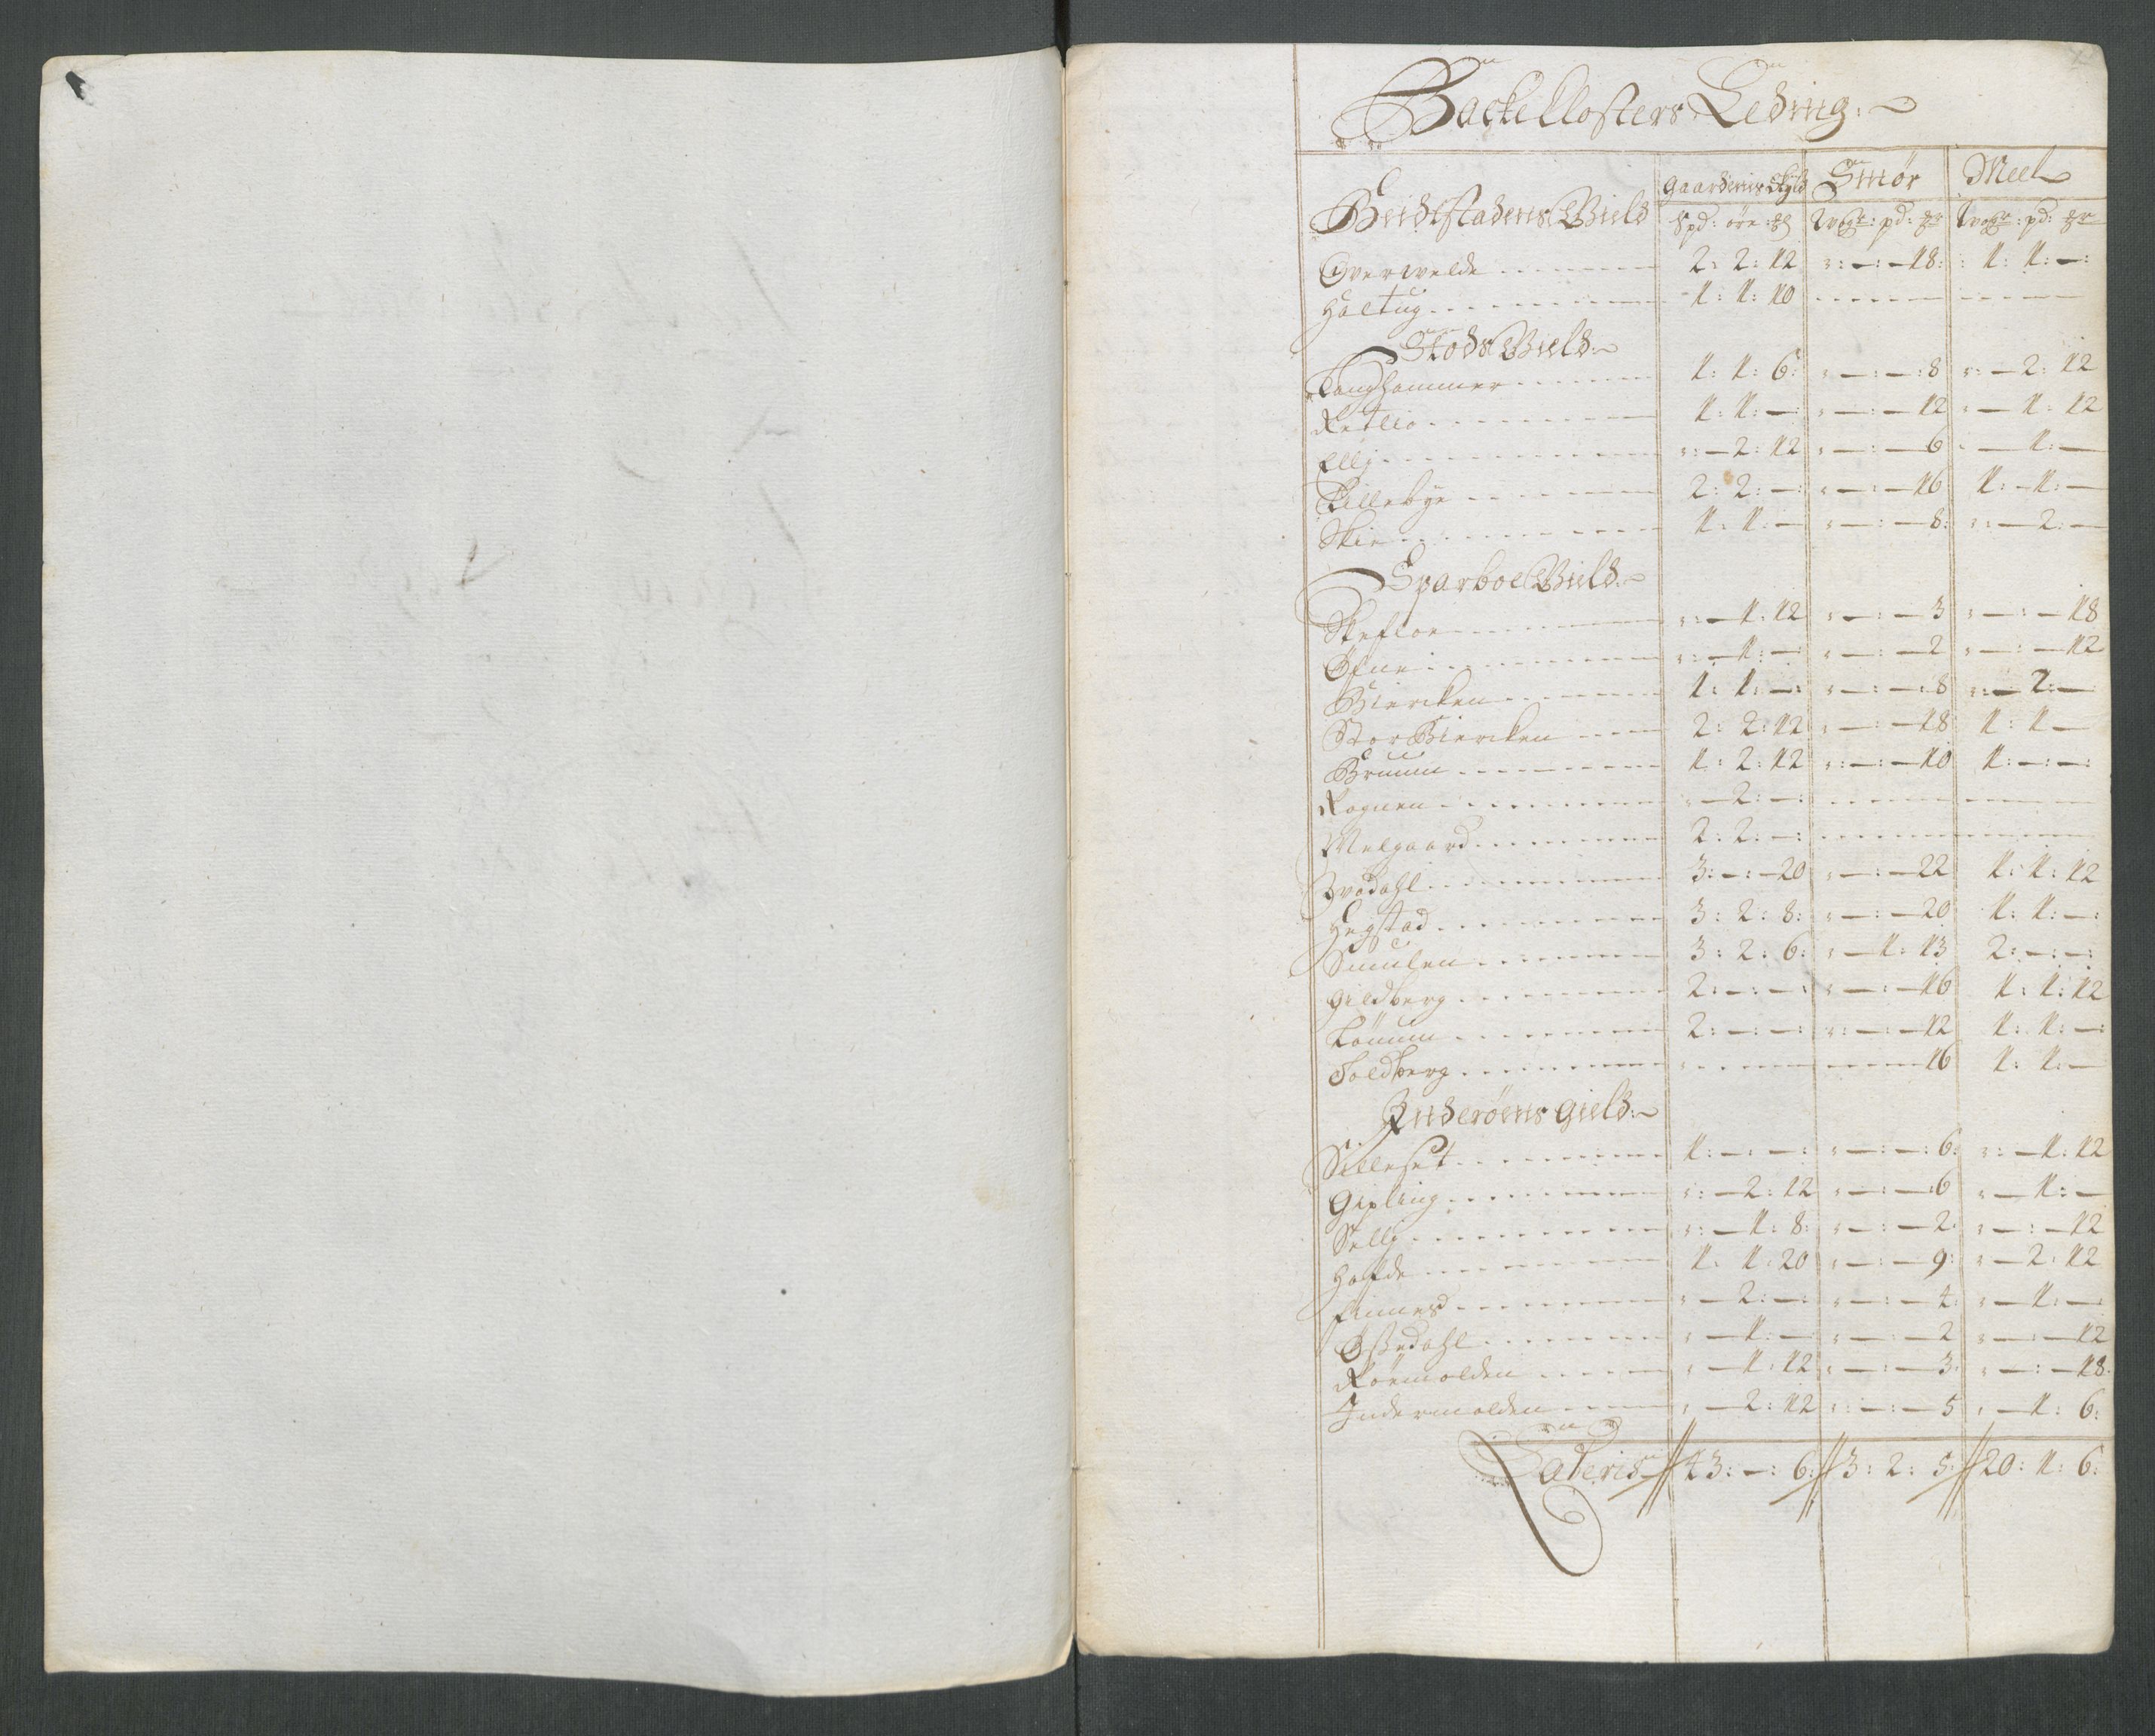 Backe Closters Leding:
Gaardenis Skyld Smør Meel
Beidstadens Gield Spd: øre: Wog: pd: Wog: pd:
Overwelde 2: 2: 12 : — : — 18: 1: 1: —:
Haltug 1: 1: 10
Stods Gield:
Langhammer 1: 1: 6: : — : — : 8 : — 2: 12
Østlio 1: 1: — : — : — 12 : — 1: 12
Ellj : — 2: 12 : — : — 6 — 1: —
Lillebye 2: 2: — : — : — 16 1: — 1: —
Skie 1: 1: — : — : — 8: : — 2: —
Sparboe Gield:
Skefloe : — 1: 12 : — : — 3 : — : — 18
Øfne : — 1: — : — : — 2 : — : — 12
Biercken 1: 1: — : — : — : 8 : — 2: —
Stor Biercken 2: 2: 12 : — : — 18 1: 1 —
Bruum 1: 2: 12 : — : — 10 1: — : —
Rognen : — 2: —
Melgaard 2: 2: —
3: — : — 20 : — : — 22 1: 1: 12
Hegstad 3: 2: 8: : — : — 20 1: 1: —:
Smulen 3: 2: 6: : — 1: 13 2: — : —
Gildberg 2: — : — : — : — 16 1: 1: 12
Lønum 2: — : — : — : — 12 1: 1: —
Foldberg 16 1: 1: —
Inderøens Gield:
Silleset 1: — : — : — : — : 6: : — 1: 12
Gipling : — 2: 12 : — : — 6 : — 1: —
Sellj : — 1: 8: : — : — 2: : — : — 12
Hafde 1: 1: 20 : — : — 9: : — 2: 12
Finnes : — 2: — : — : — 4: : — 1: —
Øßedahl : — 1: — : — : — 2 : — : — 12
Røemolden : — 1: 12 : — : — 3: : — : — 18:
Indermolden : — 2: 12 : — : — 5 : — 1: 6:
Lateris 43: — : 6: 3: 2: 5: 20: 1: 6: